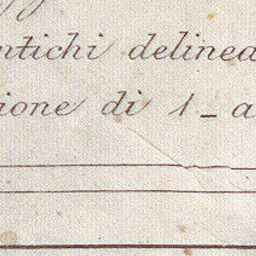 ntichi delinea
ione di 1_a